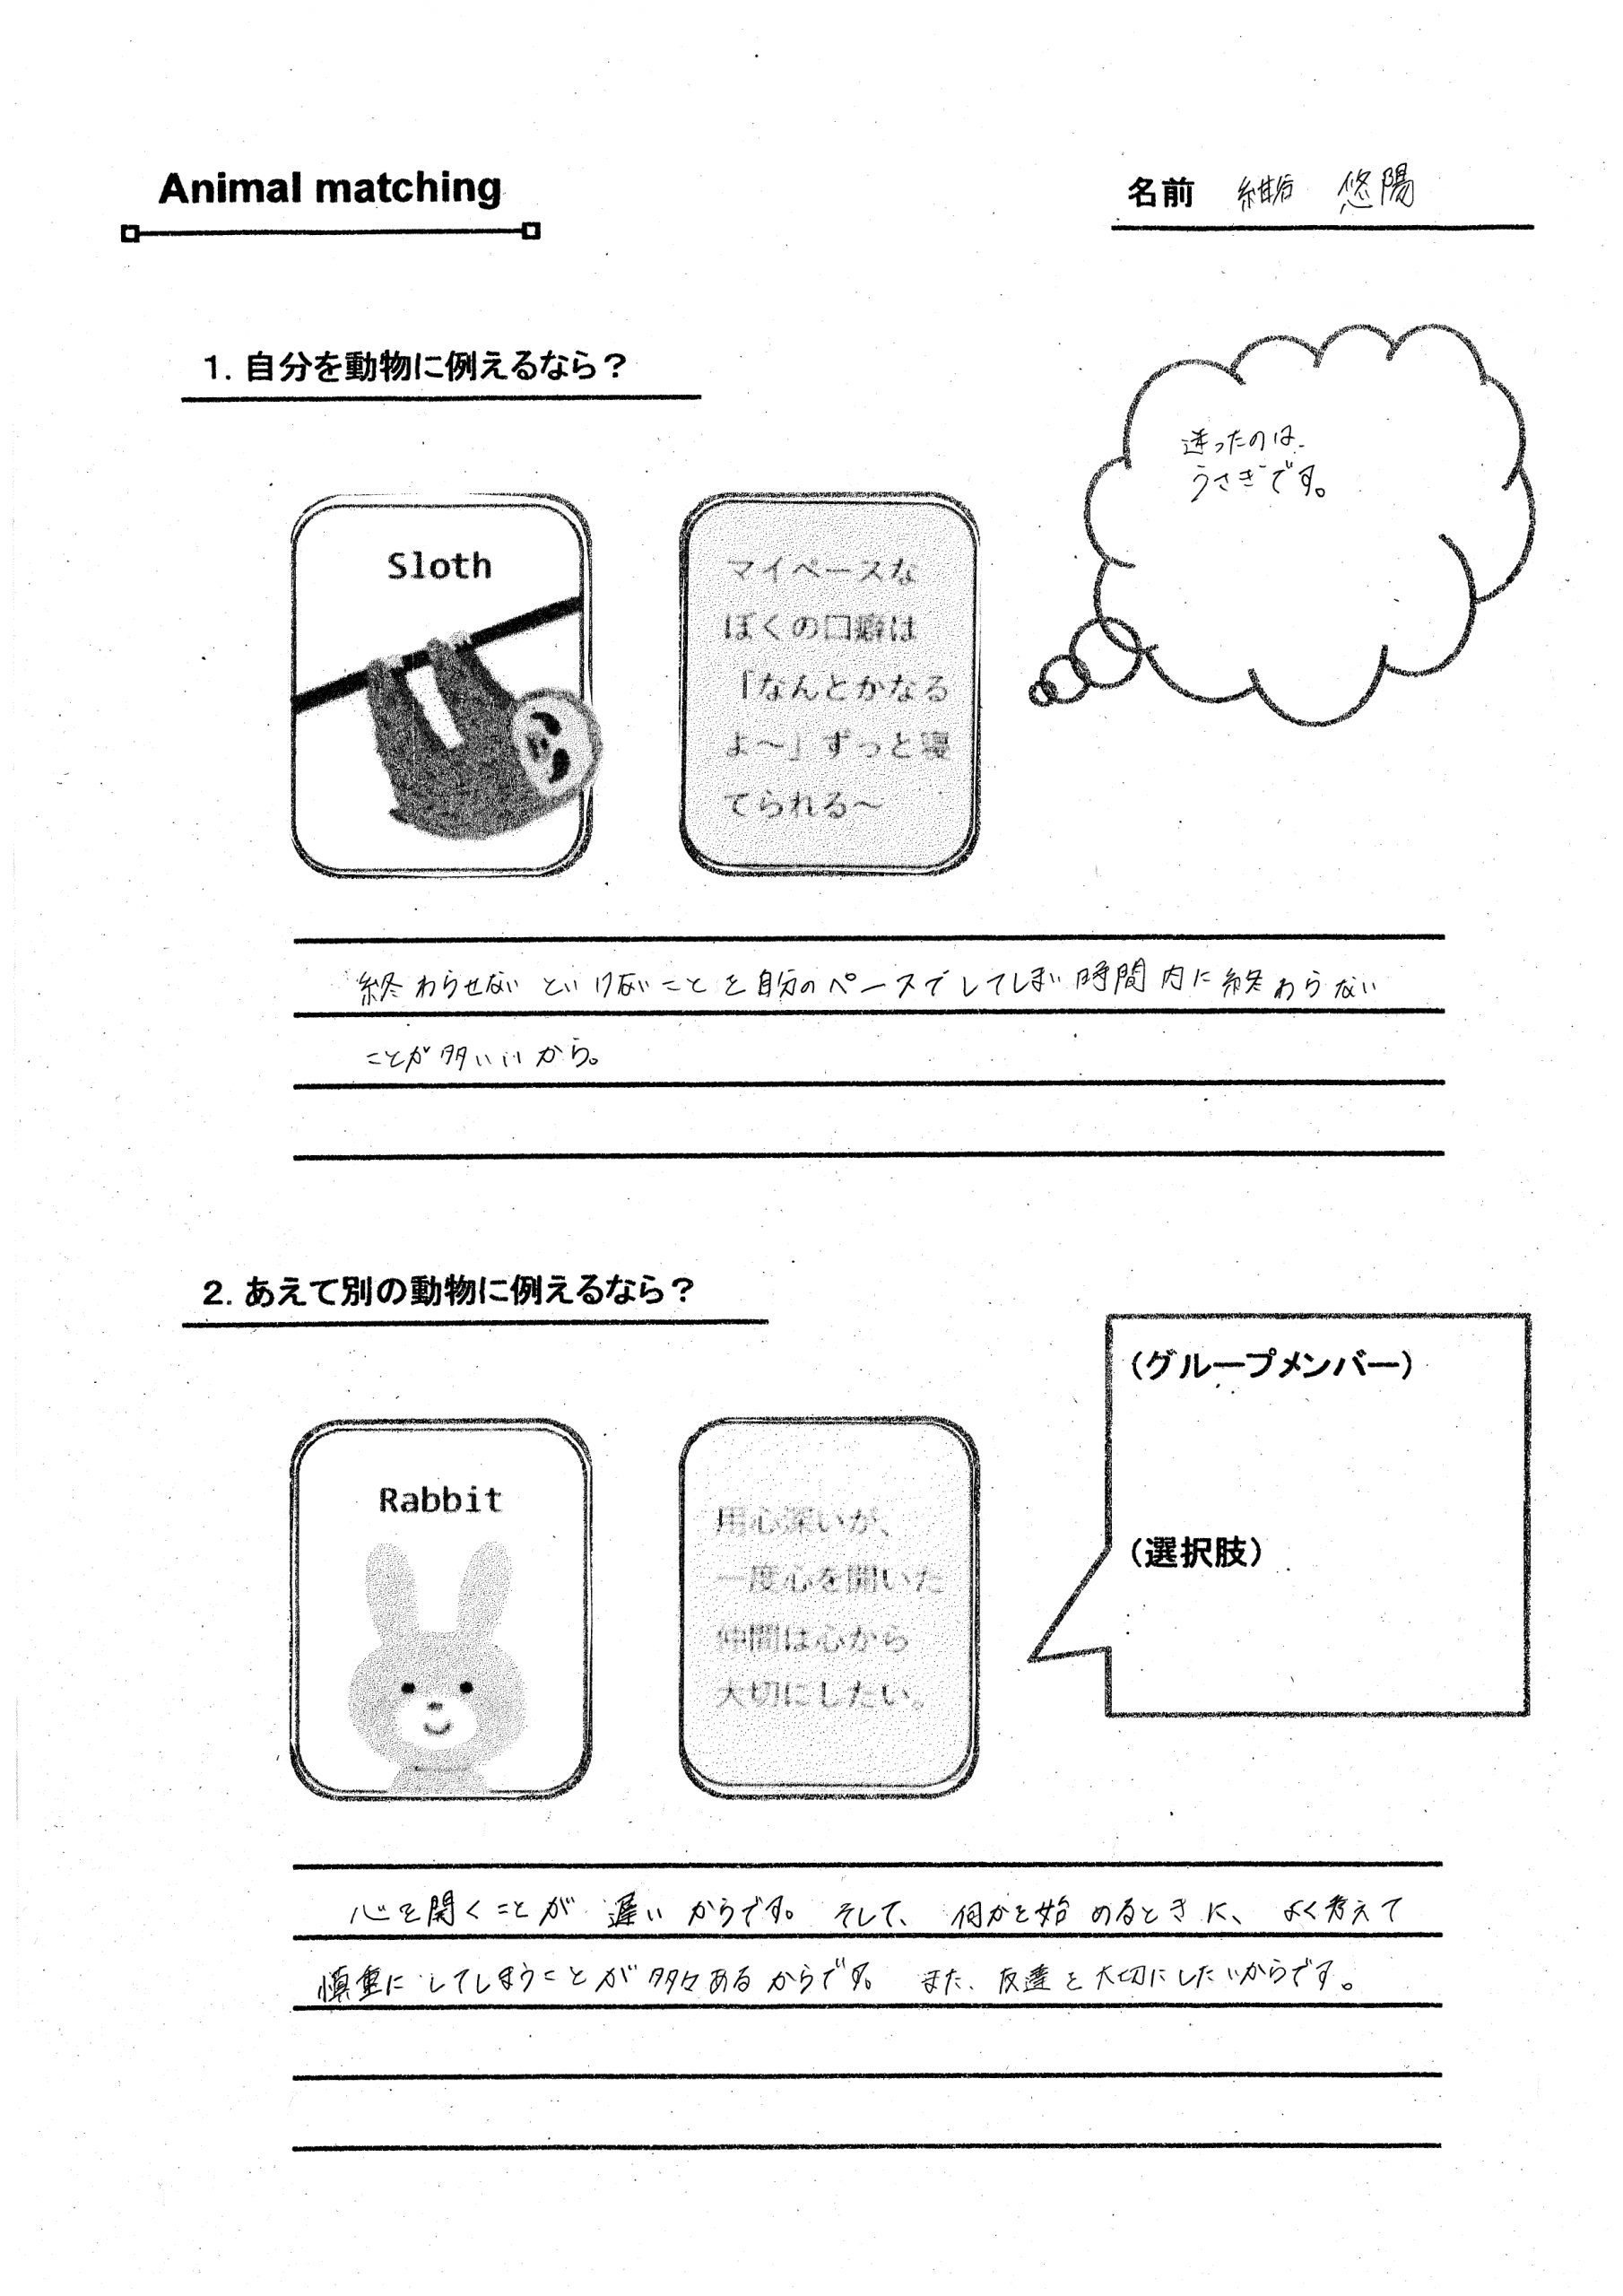 Animal matching
名前 悠陽
1. 自分を動物に例えるなら？
迷ったのは、
うさぎです。
Sloth
マイペースな
ぼくの口癖は
「なんとかなる
よ～」ずっと寝
てられる～
終わらせないといけないことを自分のペースでしてしまい時間内に終わらない
ことが多いいから。
2. あえて別の動物に例えるなら？
（グループメンバー）
（選択肢）
Rabbit
用心深いが、
一度心を開いた
仲間は心から
大切にしたい。
心を開くことが遅いからです。そして、何かを始めるときに、よく考えて
慎重にしてしまうことが多々あるからです。また、友達を大切にしたいからです。